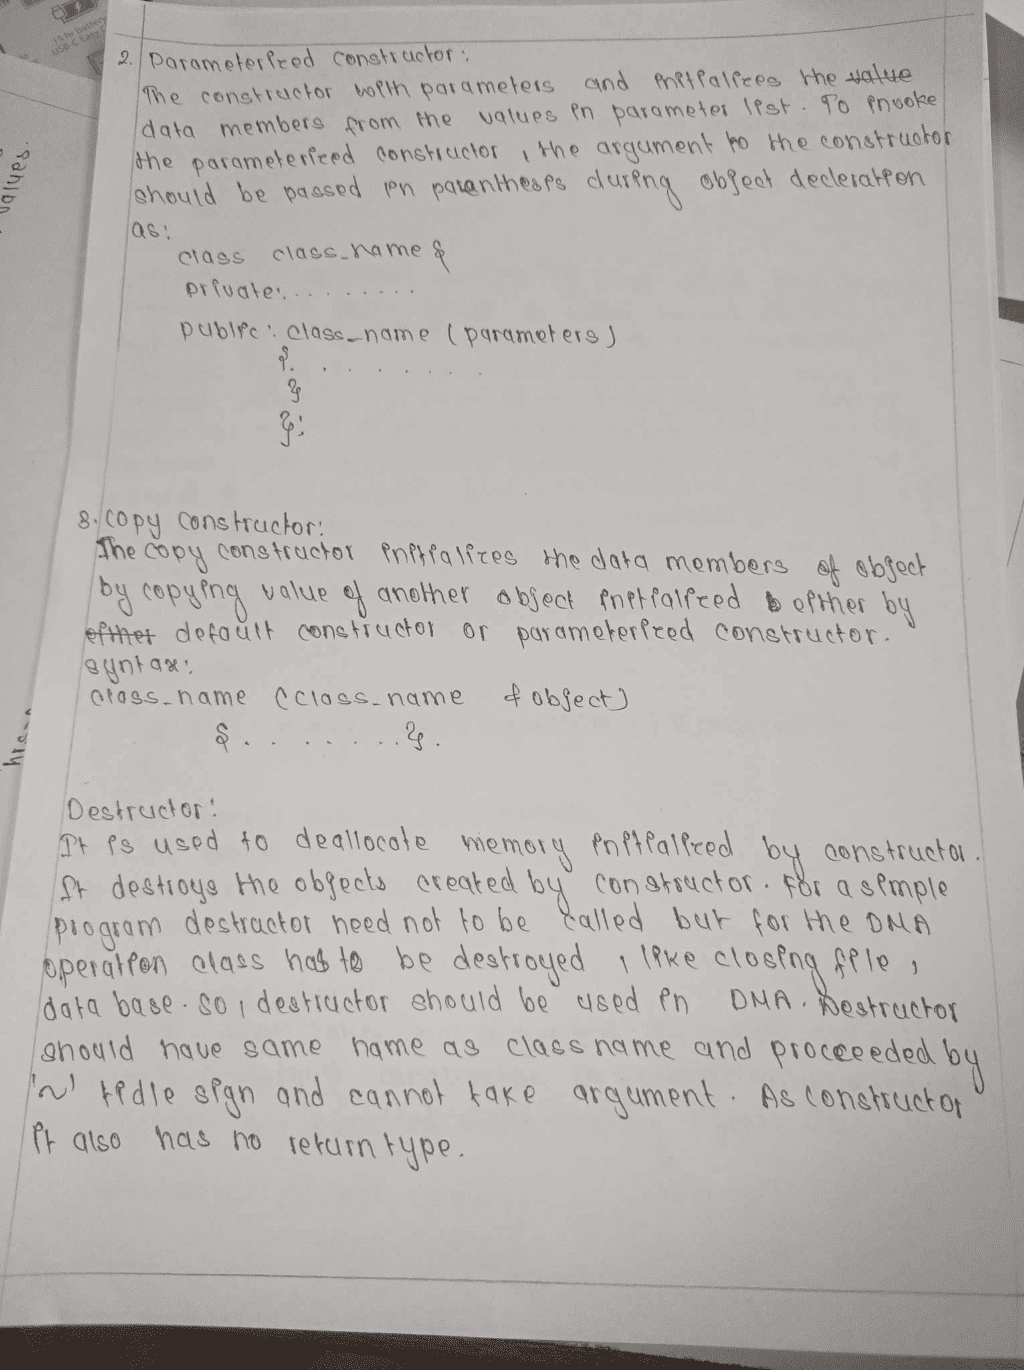 2. Parameterized constructor:
The constructor with parameters and initializes the value
data members from the values in parameter list. To invoke
the parameterized constructor, the argument to the constructor
should be passed in paranthesis during object decleration
as:
class class_name {
private:. . . . . . . . .
public: class_name (parameters)
{. . . . . . . .
}
};
3. Copy constructor:
The copy constructor initializes the data members of object
by copying value of another object initialized either by
either default constructor or parameterized constructor.
syntax:
class_name (class_name & object)
{ . . . . . . . }.
Destructor:
It is used to deallocate memory initialized by constructor.
It destroys the objects created by constructor. For a simple
program destractor need not to be called but for the DMA
operation class has to be destroyed, like closing file,
data base. So, destructor should be used in DMA. Destructor
should have same name as class name and proceeeded by
'~' tidle sign and cannot take argument. As constructor
it also has no return type.
values.